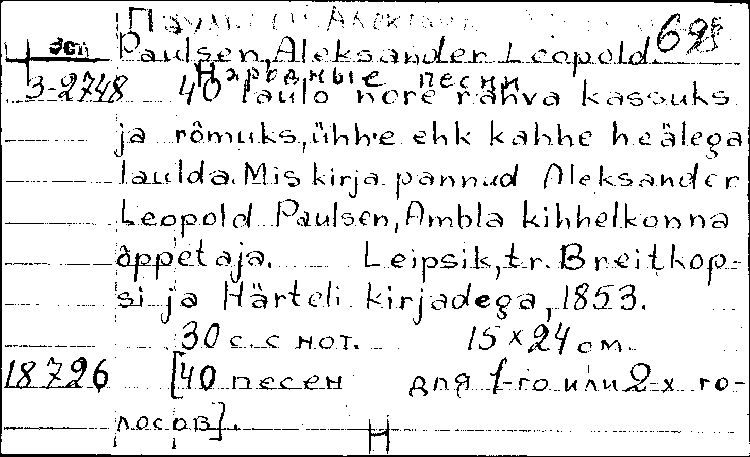 эсп Paulsen, Aleksander Leopold.
Народные песни
3-2748 40 laulo nore rahva kassuks
ja rômuks, ühhe ehk kahhe heälega
laulda. Mis kirja pannud Aleksander
Leopold Paulsen, Ambla kihhelkonna
õppetaja. Leipsik, tr. Breitkop-
si ja Härteli kirjadega, 1853.
30 с. с нот. 15 × 24 см.
18726 [40 песен для 1-го или 2-х го-
лосов].
Н